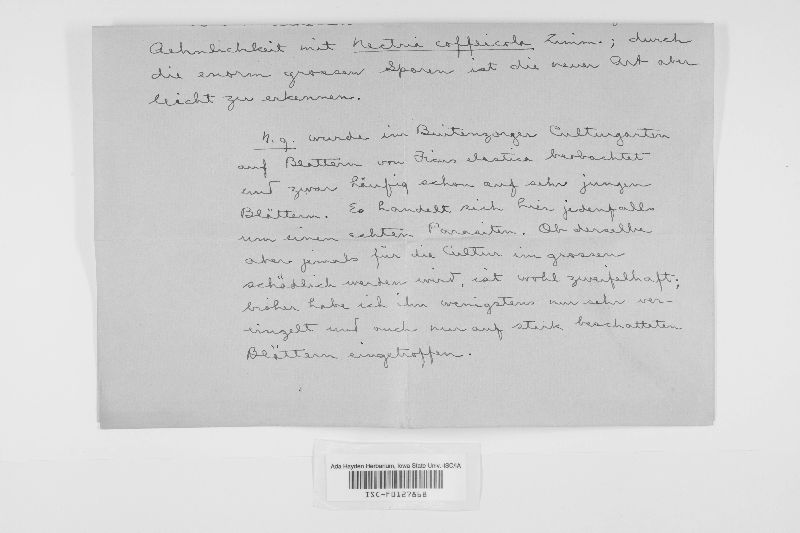 Aehnlichkeit mit Nectria coffeicola Zimm.; durch
die enorm grossen Sporen ist die neuer Art aber
leicht zu erkennen.
N. g. wurde im Buitenzorger Culturgarten
auf Blattern von Ficus elastica beobachtet
und zwar häufig schon auf sehr jungen
Blättern. Es handelt sich hier jedenfalls
um einen echten Parasiten. Ob derselbe
aber jemals für die Cultur im grossen
schädlich werden wird, ist wohl zweifelhaft;
bisher habe ich ihn wenigstens nur sehr ver-
einzelt und auch nur auf stark beschatteten
Blättern eingetroffen.
Ada Hayden Herbarium, Iowa State Univ.-ISC/IA
ISC-F0127668